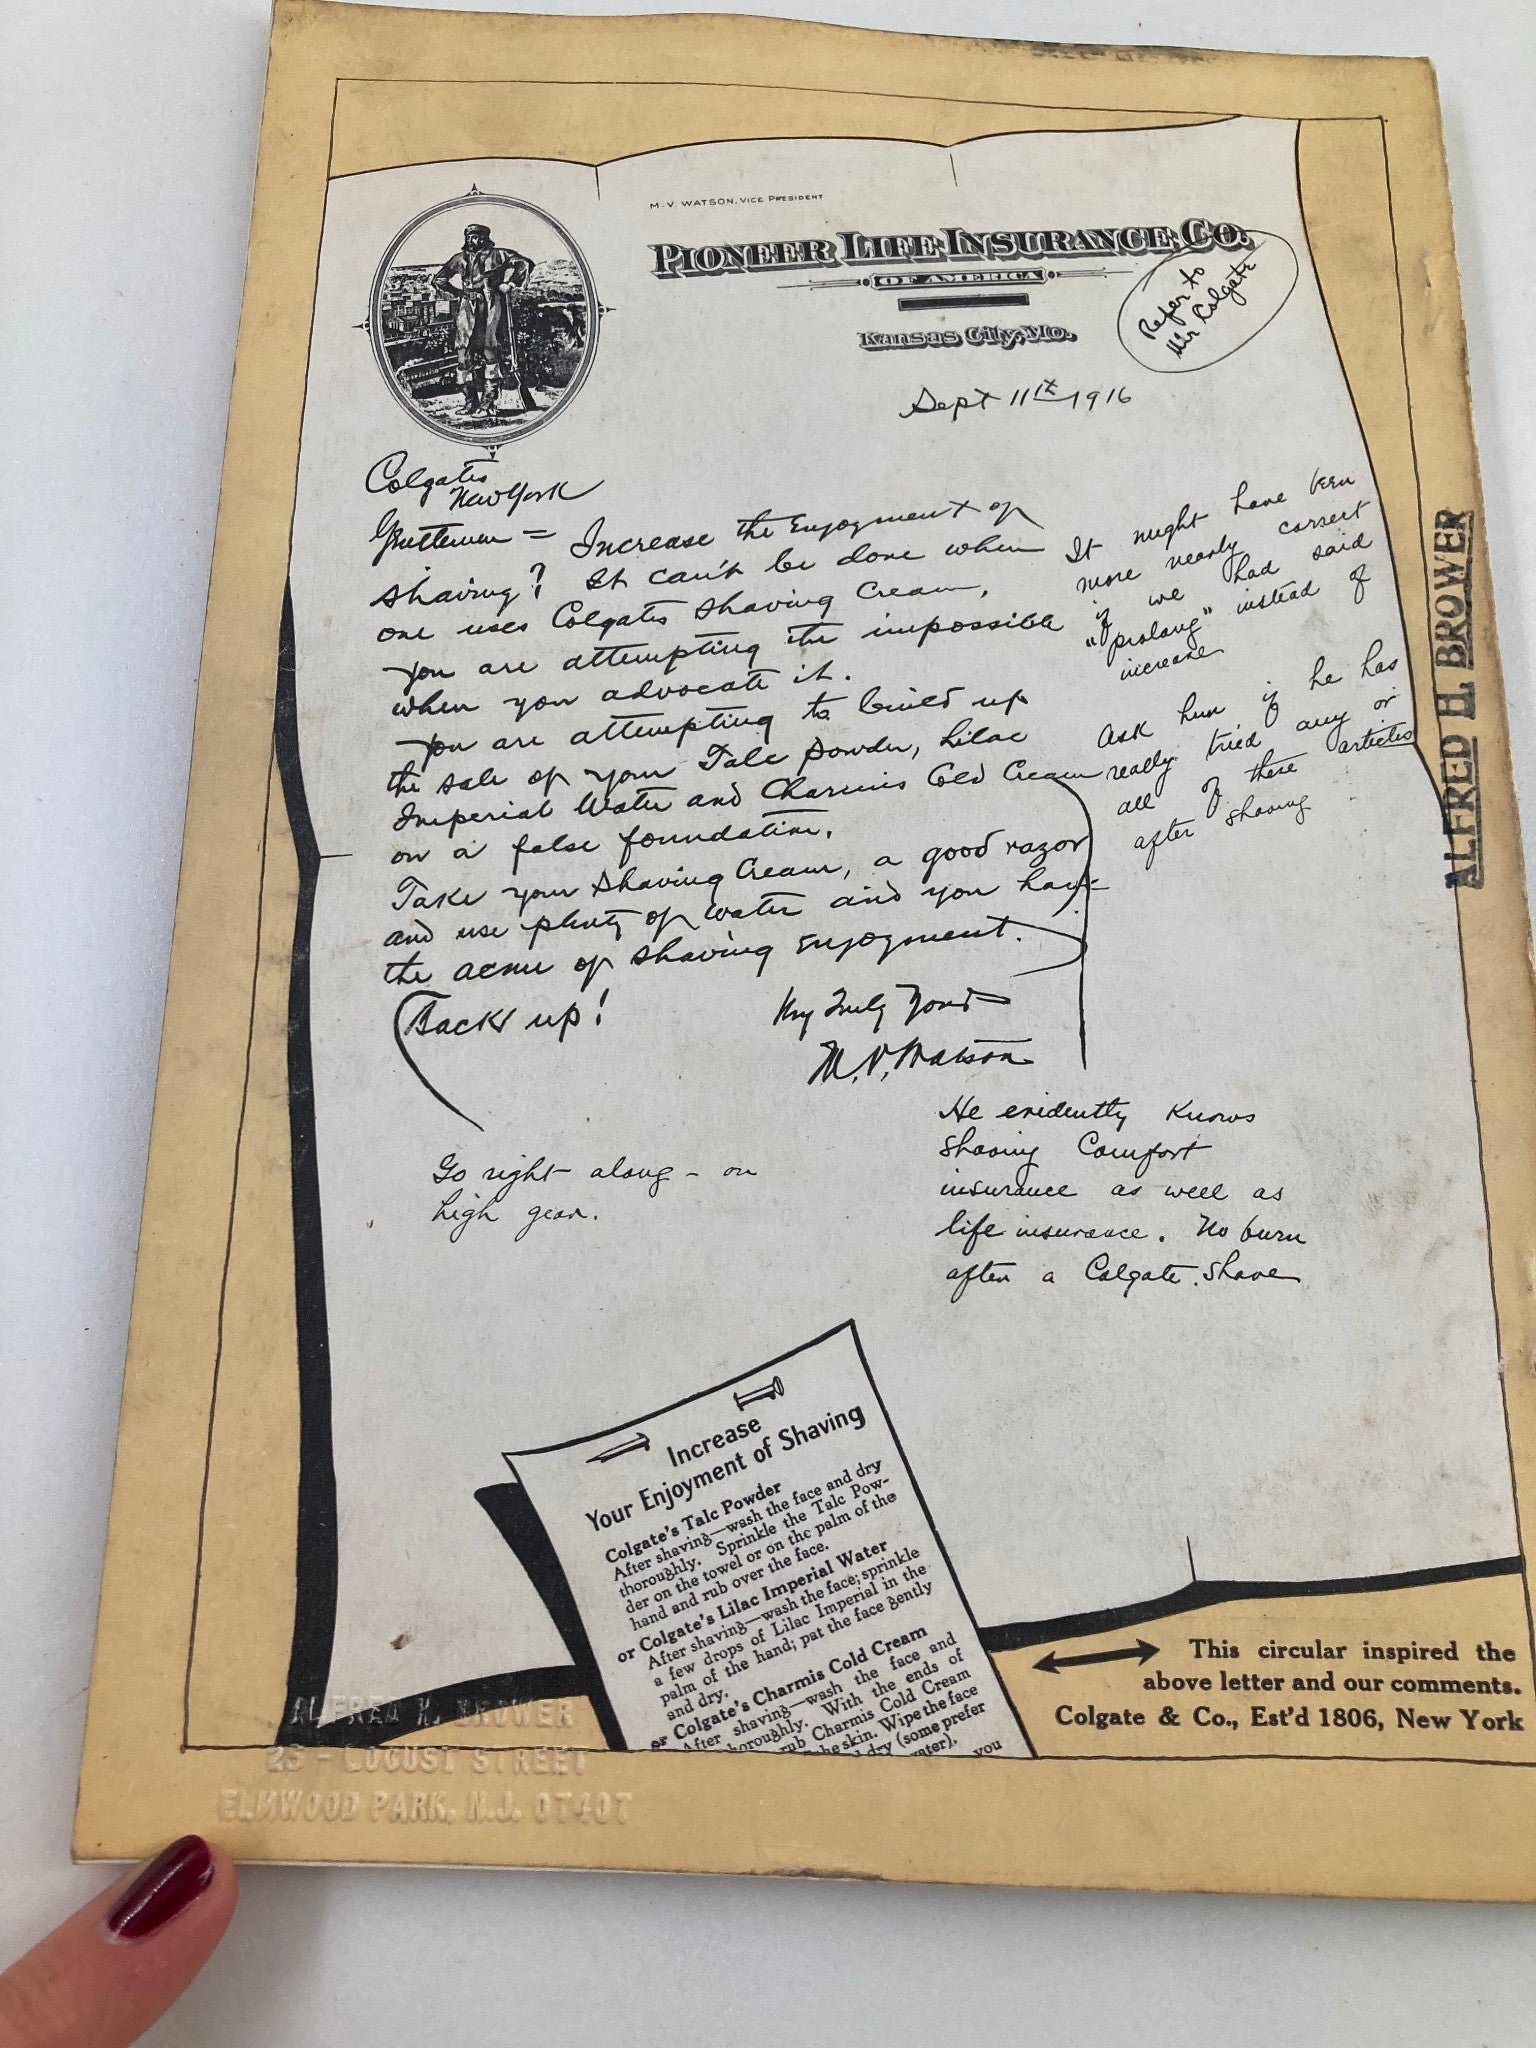 M. V. WATSON, VICE PRESIDENT
PIONEER LIFE INSURANCE CO.
OF AMERICA
KANSAS CITY, MO.
Refer to
Mr Colgate
Sept 11th 1916
Colgates
New York
Gentlemen = Increase the Enjoyment of
shaving? It can't be done when
one uses Colgates Shaving Cream,
You are attempting the impossible
when you advocate it.
You are attempting to build up
the sale of your Talc Powder, Lilac
Imperial Water and Charmis Cold Cream
on a false foundation.
Take your Shaving Cream, a good razor
and use plenty of water and you have
the acme of shaving Enjoyment.
Back up!
Very Truly Yours
M. V. Watson
It might have been
more nearly correct
if we had said
"prolong" instead of
increase
Ask him if he has
really tried any or
all of these articles
after shaving
He evidently knows
Shaving Comfort
insurance as well as
life insurance. No burn
after a Colgate Shave
Go right along - on
high gear.
Increase
Your Enjoyment of Shaving
Colgate's Talc Powder
After shaving—wash the face and dry
thoroughly. Sprinkle the Talc Pow-
der on the towel or on the palm of the
hand and rub over the face.
or Colgate's Lilac Imperial Water
After shaving—wash the face; sprinkle
a few drops of Lilac Imperial in the
palm of the hand; pat the face gently
and dry.
or Colgate's Charmis Cold Cream
After shaving—wash the face and
thoroughly. With the ends of
rub Charmis Cold Cream
the skin. Wipe the face
dry (some prefer
water).
you
This circular inspired the
above letter and our comments.
Colgate & Co., Est'd 1806, New York
ALFRED H. BROWER
ALFRED H. BROWER
23 - LOCUST STREET
ELMWOOD PARK, N.J. 07407